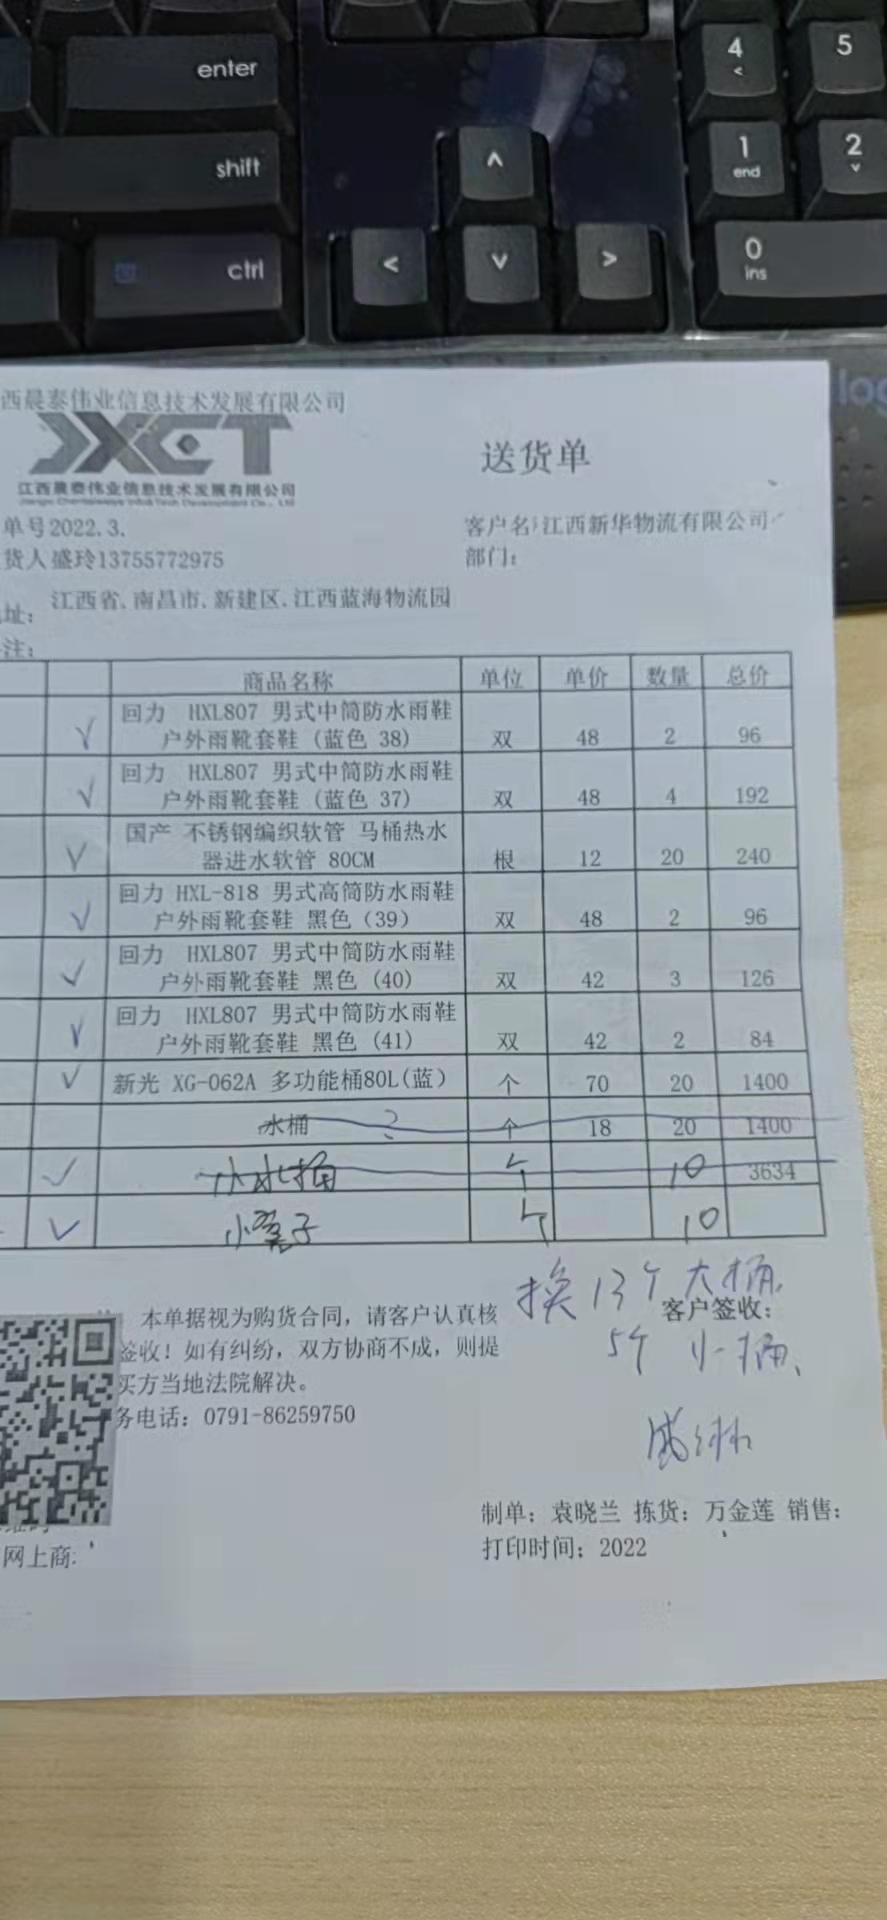 enter
shift
ctrl
4
5
1
end
2
0
ins
log
西晨泰伟业信息技术发展有限公司
JXCT
江西晨泰伟业信息技术发展有限公司
送货单
单号2022.3.
客户名 江西新华物流有限公司
货人 盛玲13755772975
部门:
址: 江西省.南昌市.新建区.江西蓝海物流园
注:
商品名称 单位 单价 数量 总价
回力 HXL807 男式中筒防水雨鞋
户外雨靴套鞋 (蓝色 38) 双 48 2 96
回力 HXL807 男式中筒防水雨鞋
户外雨靴套鞋 (蓝色 37) 双 48 4 192
国产 不锈钢编织软管 马桶热水
器进水软管 80CM 根 12 20 240
回力 HXL-818 男式高筒防水雨鞋
户外雨靴套鞋 黑色 (39) 双 48 2 96
回力 HXL807 男式中筒防水雨鞋
户外雨靴套鞋 黑色 (40) 双 42 3 126
回力 HXL807 男式中筒防水雨鞋
户外雨靴套鞋 黑色 (41) 双 42 2 84
新光 XG-062A 多功能桶80L(蓝) 个 70 20 1400
水桶 ? 个 18 20 1400
小水桶 个 10 3634
小 子 个 10
换13个大桶.
客户签收:
5个 小桶、
本单据视为购货合同，请客户认真核
签收！如有纠纷，双方协商不成，则提
买方当地法院解决。
务电话: 0791-86259750
制单: 袁晓兰 拣货: 万金莲 销售:
打印时间: 2022
网上商